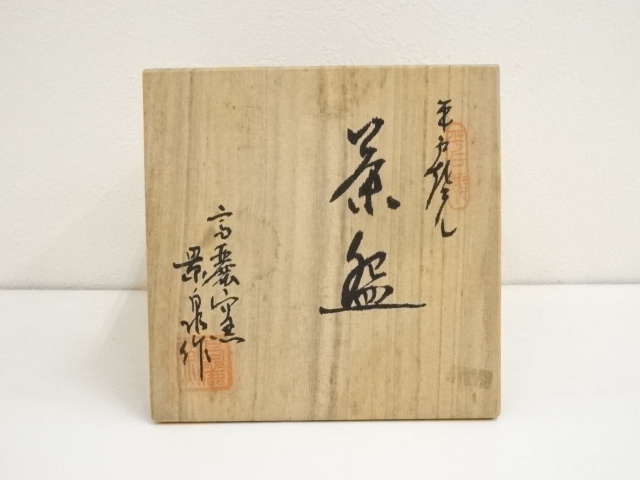 平戸
茶盌
高麗窯
景泉作